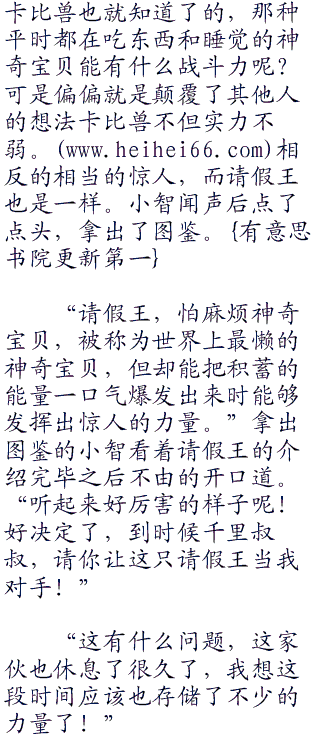 卡比兽也就知道了的，那种
平时都在吃东西和睡觉的神
奇宝贝能有什么战斗力呢？
可是偏偏就是颠覆了其他人
的想法卡比兽不但实力不
弱。(www.heihei66.com)相
反的相当的惊人，而请假王
也是一样。小智闻声后点了
点头，拿出了图鉴。{有意思
书院更新第一}
“请假王，怕麻烦神奇
宝贝，被称为世界上最懒的
神奇宝贝，但却能把积蓄的
能量一口气爆发出来时能够
发挥出惊人的力量。”拿出
图鉴的小智看着请假王的介
绍完毕之后不由的开口道。
“听起来好厉害的样子呢！
好决定了，到时候千里叔
叔，请你让这只请假王当我
对手！”
“这有什么问题，这家
伙也休息了很久了，我想这
段时间应该也存储了不少的
力量了！”